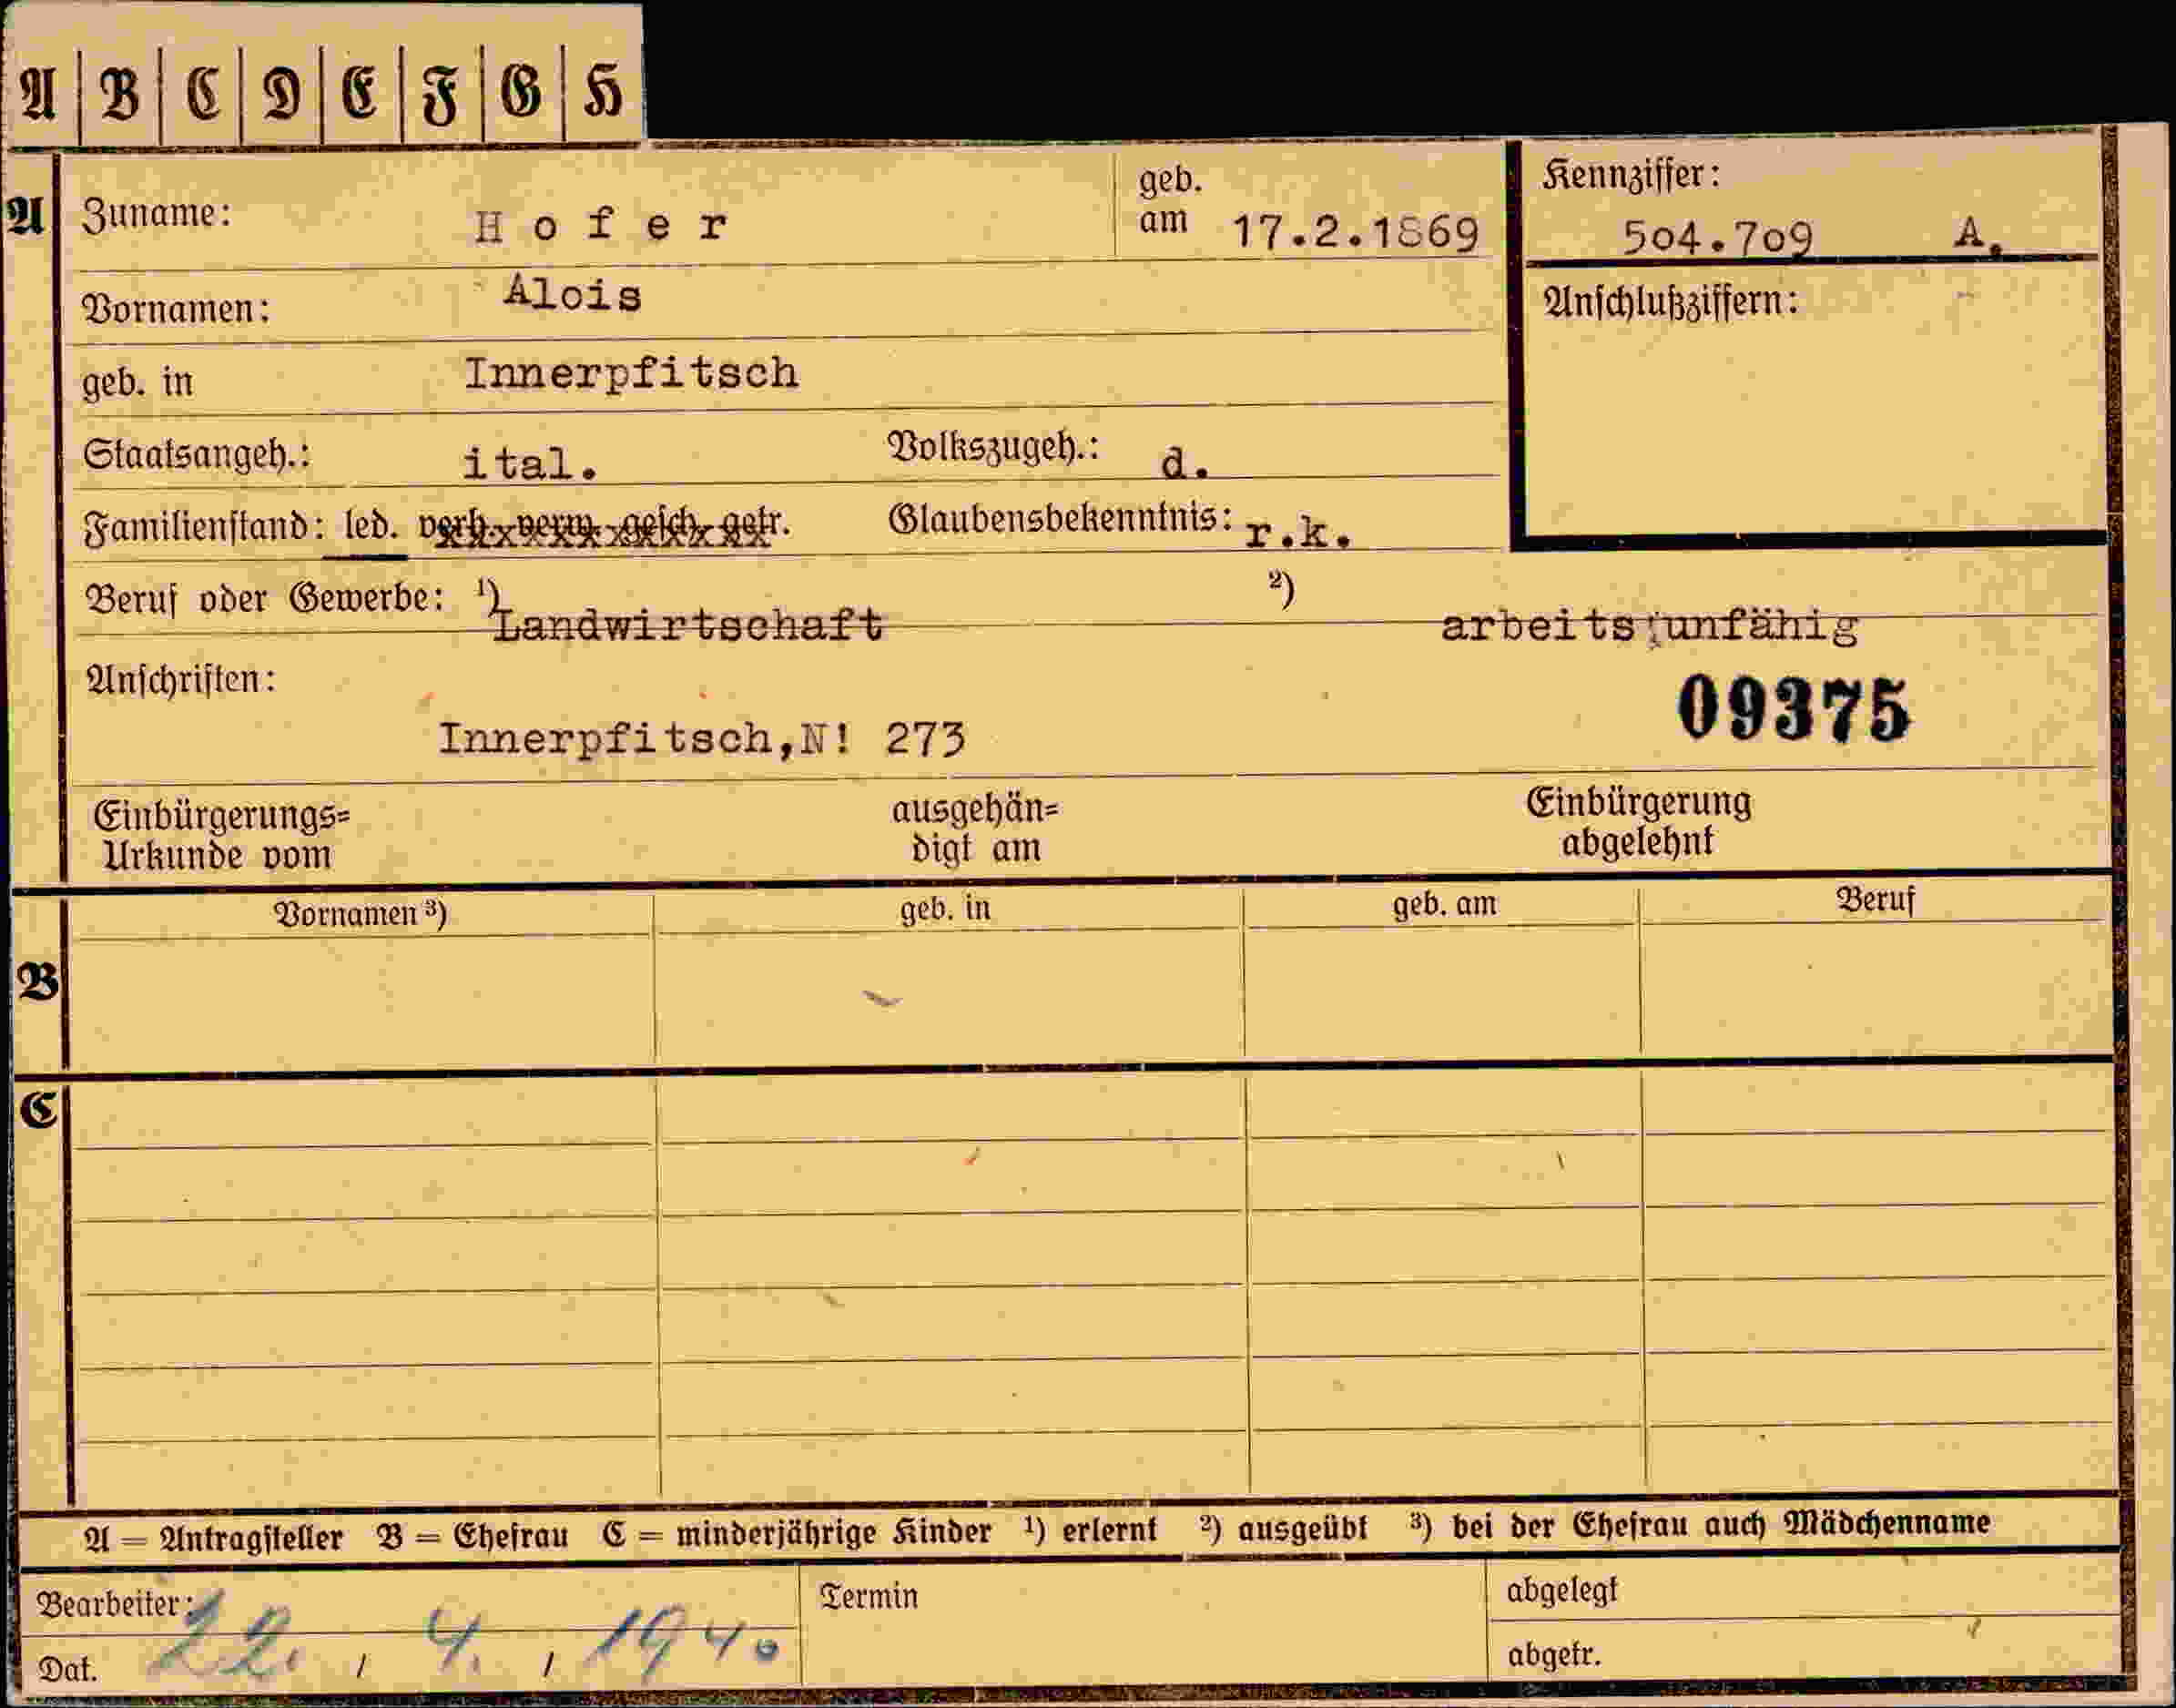 A B C D E F G H
A Zuname: Hofer geb. am 17.2.1869 Kennziffer: 504.709 A.
Vornamen: Alois Anschlußziffern:
geb. in Innerpfitsch
Staatsangeh.: ital. Volkszugeh.: d.
Familienstand: led. verh. verw. gesch. getr. Glaubensbekenntnis: r.k.
Beruf oder Gewerbe: 1) Landwirtschaft 2) arbeitsunfähig
Anschriften: 09375
Innerpfitsch,N! 273
Einbürgerungs= ausgehän= Einbürgerung
Urkunde vom digt am abgelehnt
Vornamen 3) geb. in geb. am Beruf
B
C
A = Antragsteller B = Ehefrau C = minderjährige Kinder 1) erlernt 2) ausgeübt 3) bei der Ehefrau auch Mädchenname
Bearbeiter: Termin abgelegt
Dat. 22. / 4. / 1940 abgetr.